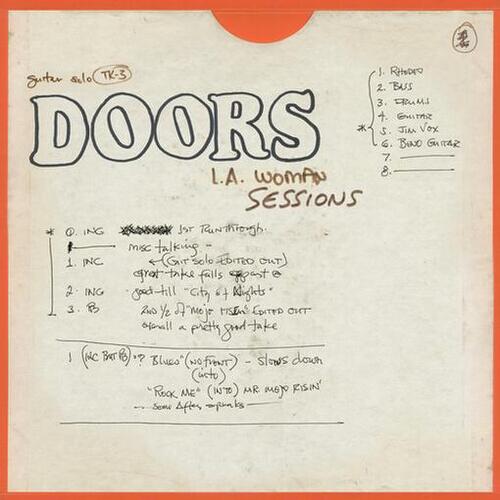 guitar solo TK-3
DOORS
L.A. WOMAN
SESSIONS
1. RHODES
2. BASS
3. DRUMS
4. GUITAR
* 5. JIM VOX
6. BEND GUITAR
7.
8.
* 0. INC 1ST RUNTHROUGH.
misc talking -
1. INC ←(GIT SOLO EDITED OUT)
great take falls apart
2. INC good till "City of Nights"
3. 2ND 1/2 of "MOJO EDITED OUT
overall a pretty good take
1 (INC BUT ? BLUES" (NO FRONT) - SLOWS DOWN
(into)
"ROCK ME" (INTO) MR. MOJO RISIN'